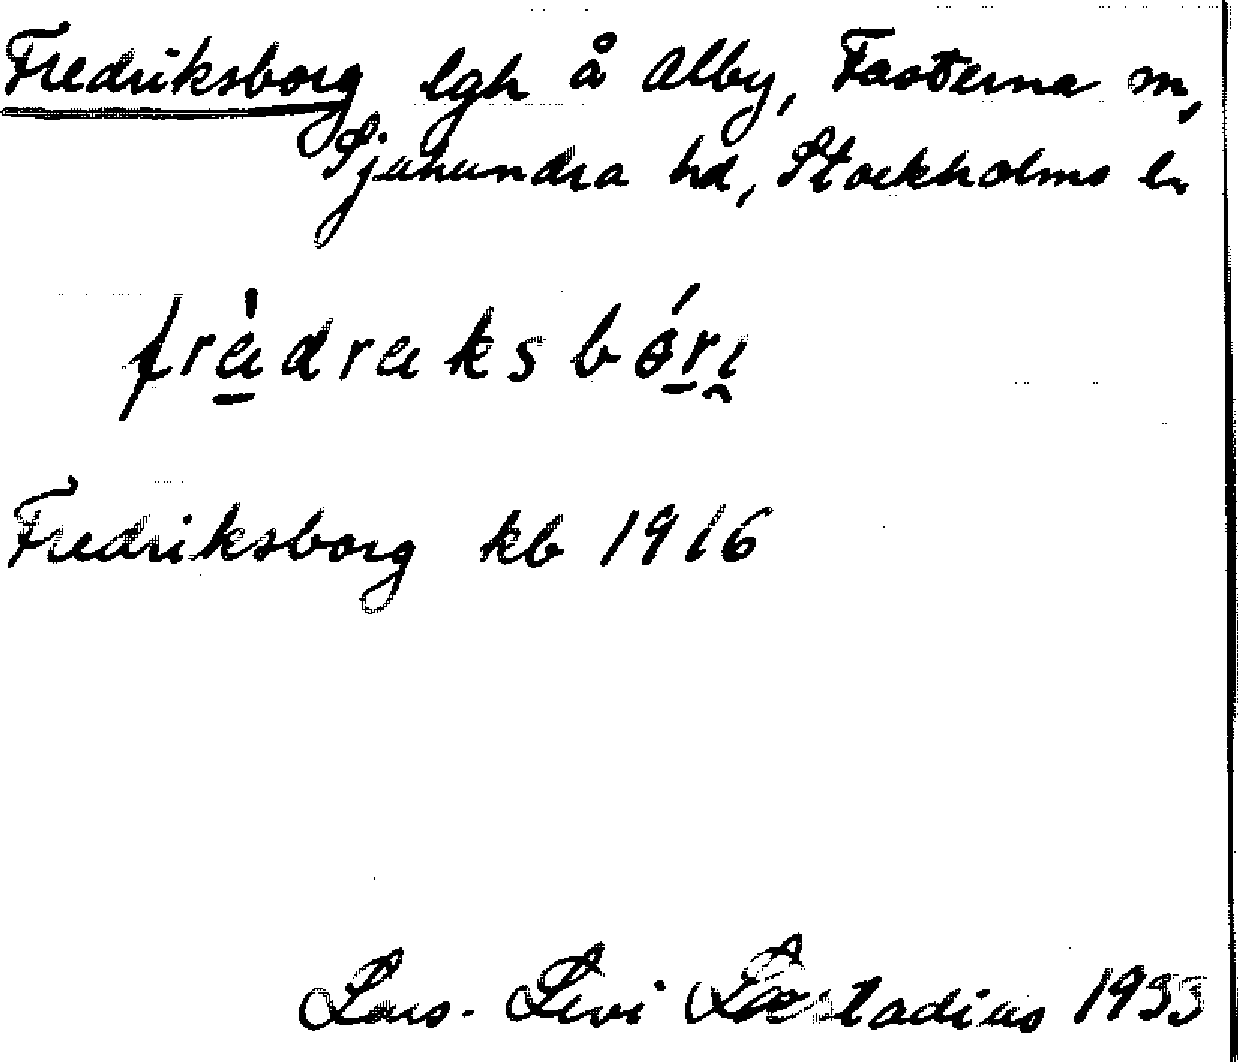 Fredriksborg lgh å Alby, Fasterna sn,
Sjuhundra hd, Stockholms ln
Fredriksborg kb 1916
Lars-Levi Læstadius 1933